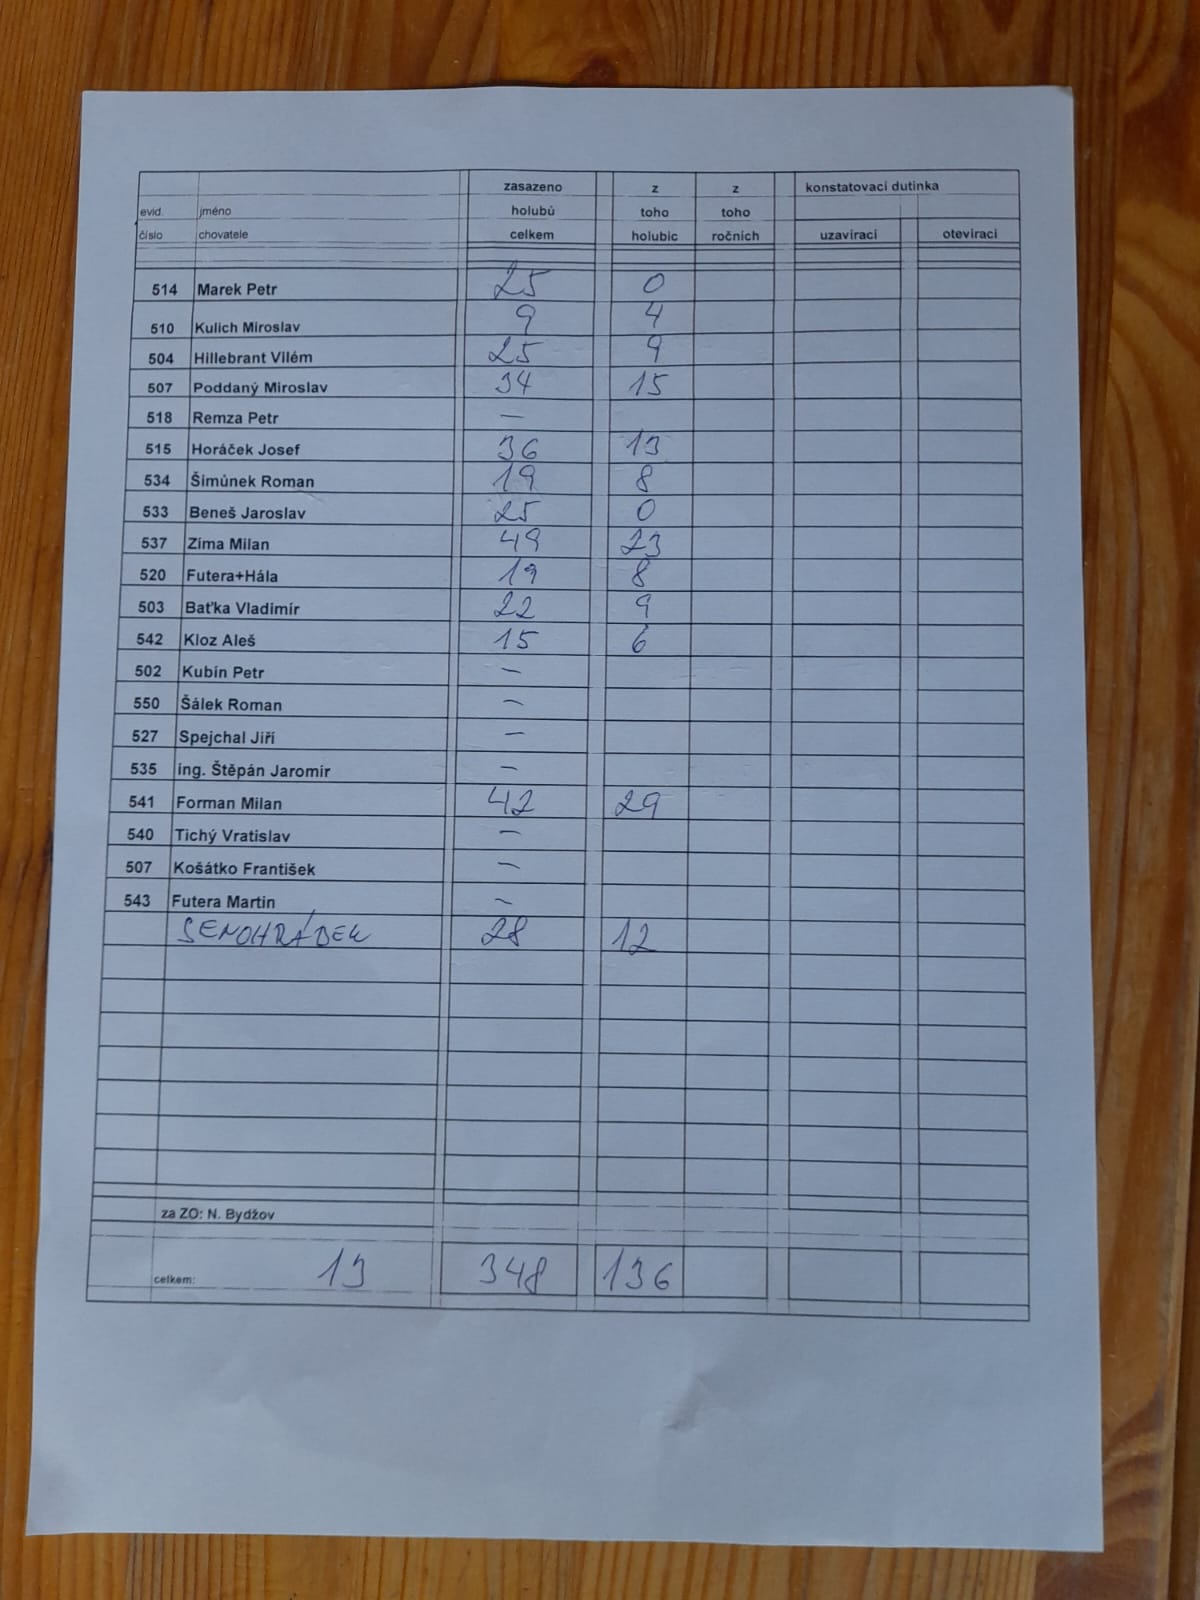 zasazeno z z konstatovací dutinka
evid. jméno holubů toho toho
číslo chovatele celkem holubic ročních uzavírací otevírací
514 Marek Petr 25 0
510 Kulich Miroslav 9 4
504 Hillebrant Vilém 25 9
507 Poddaný Miroslav 34 15
518 Remza Petr –
515 Horáček Josef 36 13
534 Šimůnek Roman 19 8
533 Beneš Jaroslav 25 0
537 Zima Milan 49 23
520 Futera+Hála 19 8
503 Baťka Vladimír 22 9
542 Kloz Aleš 15 6
502 Kubín Petr –
550 Šálek Roman –
527 Spejchal Jiří –
535 ing. Štěpán Jaromír –
541 Forman Milan 42 29
540 Tichý Vratislav –
507 Košátko František –
543 Futera Martin –
SENOHRÁBEK 28 12
za ZO: N. Bydžov
celkem: 13 348 136